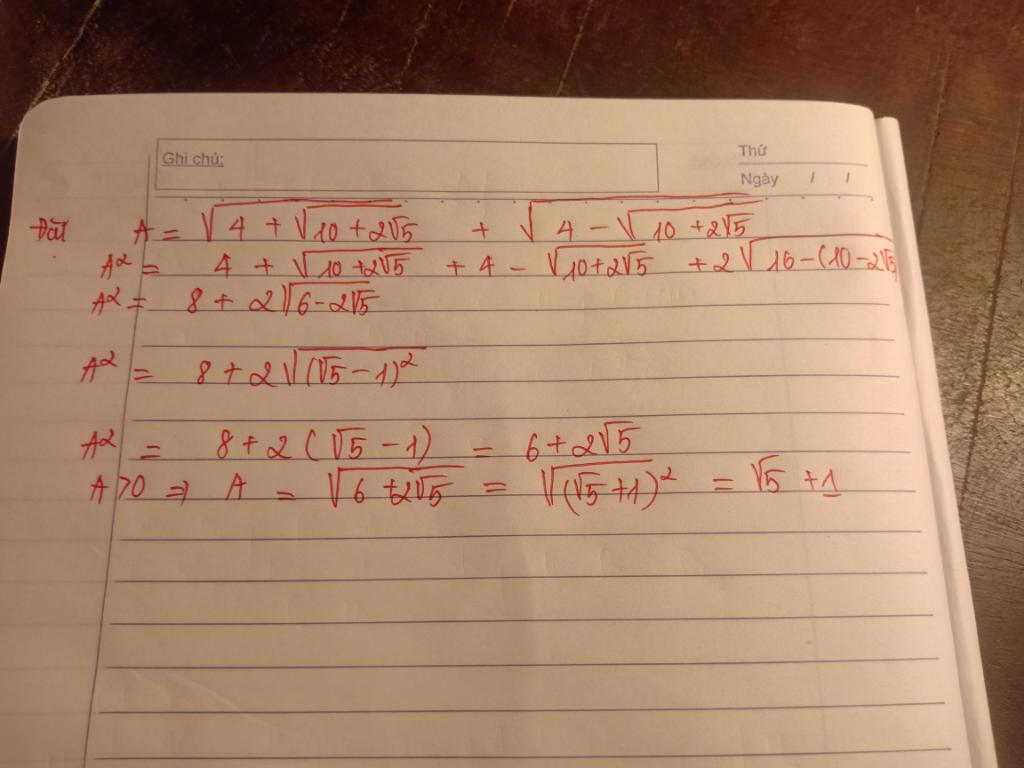 Ghi chú:
Thứ
Ngày / /
Đặt A = √(4 + √(10 + 2√5)) + √(4 − √(10 + 2√5))
A² = 4 + √(10 + 2√5) + 4 − √(10 + 2√5) + 2√(16 − (10 − 2√5)
A² = 8 + 2√(6 − 2√5)
A² = 8 + 2√((√5 − 1)²)
A² = 8 + 2(√5 − 1) = 6 + 2√5
A > 0 ⇒ A = √(6 + 2√5) = √((√5 + 1)²) = √5 + 1